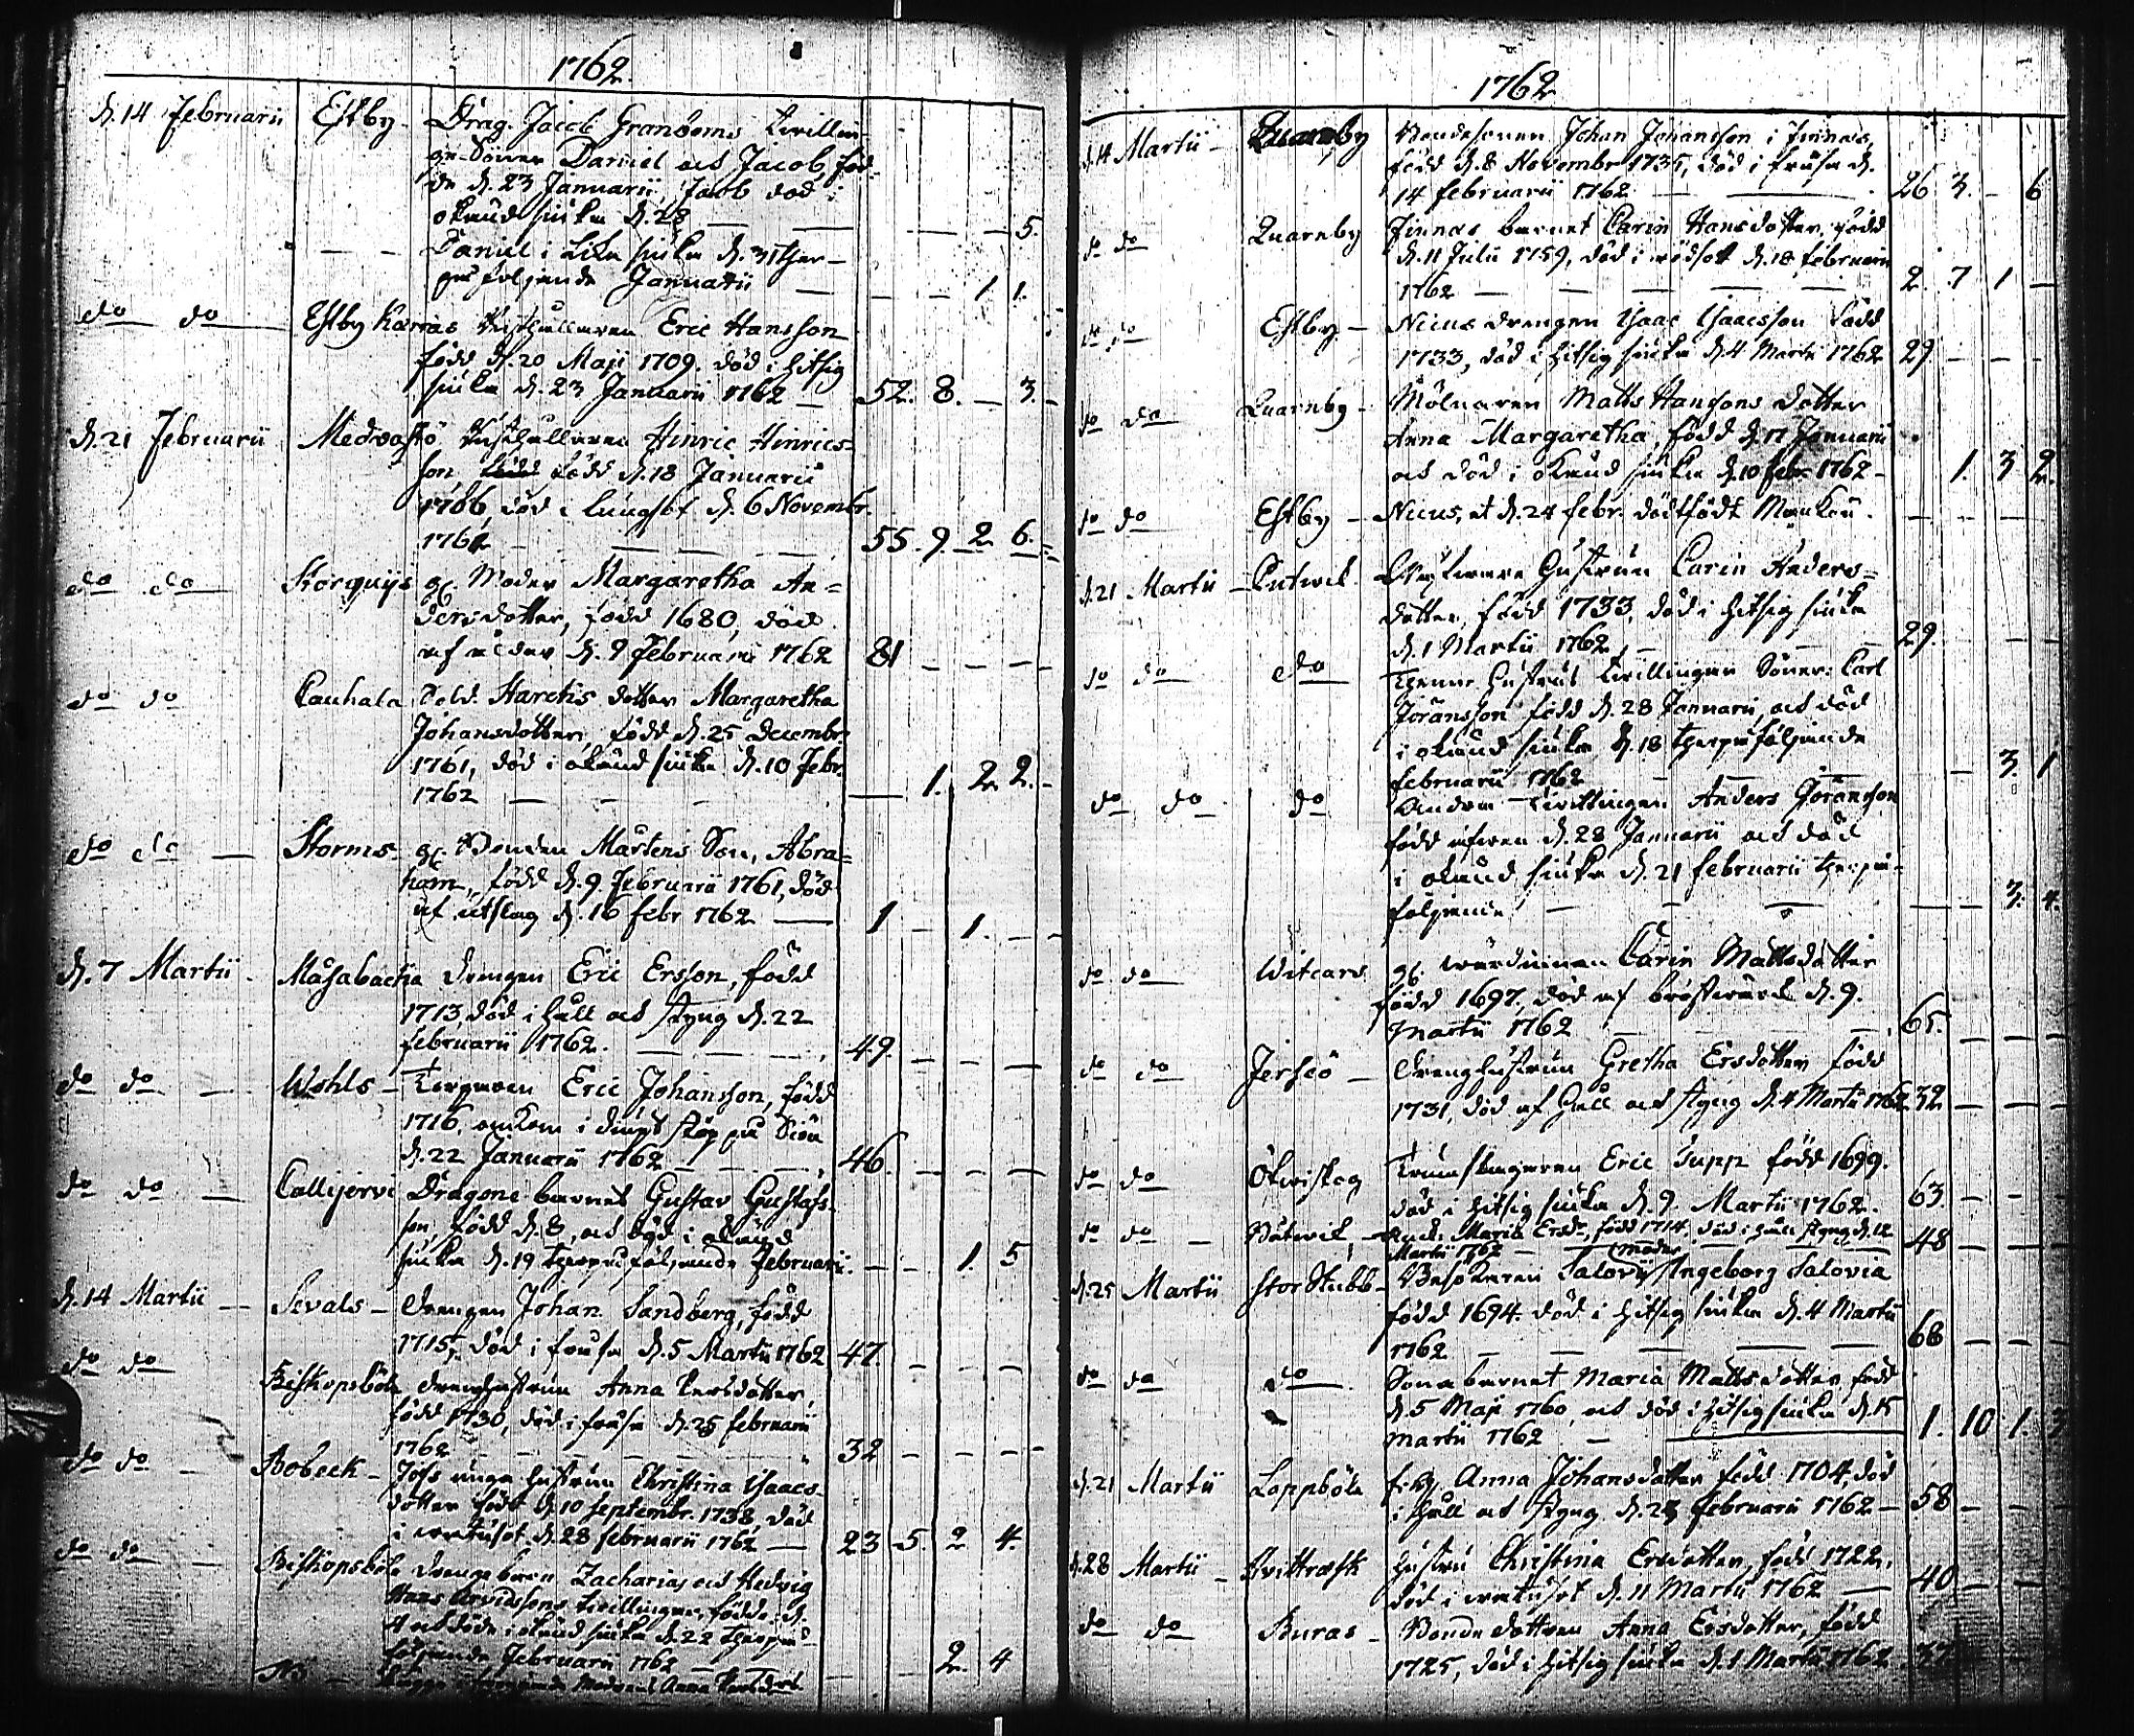 1762
d. 14 Februarii Estby Drag. Jacob Granboms tvillin-
ge Söner Daniel och Jacob, föd-
de d. 23 Januarii, Jacob död i
okänd siuka d. 28 — — — 5.
— — Daniel i lika siuka d. 31 ther-
på följande Januarii — — — 1 1.
do do Estby Karias Inhysingen Eric Hansson
född d. 20 Maji 1709. död i hitsig
siuka d. 23 Januarii 1762 — 52. 8. — 3.
d. 21 Februarii Medvastö Hinric Hinrics-
son, född d. 18 Januarii
1706, död i lungsot d. 6 Novembr.
1761 — — — 55. 9. 2 6.
do do Korquijs gl. Moder Margaretha An-
dersdotter, född 1680, död
af ålder d. 9 Februarii 1762 81 — — —
do do Cauhala Sold. Harctis dotter Margaretha
Johansdotter, född d. 25 Decembr.
1761, död i okänd siuka d. 10 Febr.
1762 — — — 1. 2 2.
do do — Storms gl. Bonden Mårtens Son, Abra-
ham, född d. 9 Februarii 1761, död
af utslag d. 16 febr 1762 — 1 — 1. —
d. 7 Martii Måsabacka drengen Eric Ersson, född
1713, död i håll och styng d. 22
februarii 1762. — 49. — — —
do do — Wohls — Torparen Eric Johansson, född
1716, omkom i på Siön
d. 22 Januarii 1762 — 46 — — —
do do — Callijervi Dragone barnet Gustav Gustafs-
son, född d. 8, och död i okänd
siuka d. 19 therpå följande Februarii. — — 1. 5
d. 14 Martii — Sevals — Drengen Johan Sandberg, född
1715, död i frusa d. 5 Martii 1762 47. — — —
do do Biskopsböle dreng hustrun Anna Larsdotter,
född 1730, död i frusa d. 25 februarii
1762 — — — 32 — — —
do do — Bobeck — Jofs unga hustrun Christina Isaacs-
dotter född d. 10 Septembr. 1738, död
i d. 28 februarii 1762 — 23 5 2 4.
do do — Biskopsböle drenge barn Zacharias och Hedvig
Hans Arvidssons tvillingar, födde d.
och döde i okänd siuka d. 22 therpå
följande Februarii 1762 — — — 2. 4
NB — Anna
1762
d. 14 Martii — Quarnby Bondesonen Johan Johansson i Finnas,
född d. 8 Novembr 1735, död i frusa d.
14 februarii 1762 — 26 3. — 6
do do Quarnby Finnas barnet Carin Hansdotter, född
d. 11 Julii 1759, död i rödsot d. 18 februarii
1762 — — — 2. 7 1 —
do do Estby — Nicus drengen Isaac Isaacsson född
1733, död i hitsig siuka d. 4 Martii 1762 29 — — —
do do Quarnby — Mölnaren Matts Hanssons dotter
Anna Margaretha, född d. 7 Januarii
och död i okänd siuka d. 10 febr. 1762 — 1. 3 2.
do do Estby — Nicus, et d. 24 febr. dödfödt Mankön. — — —
d. 21 Martii — hustrun Carin Anders-
dotter, född 1733, död i hitsig siuka
d. 1 Martii 1762 — 29. — — —
do do do Thenne hustrus tvillingar Söner: Carl
Joransson född d. 28 Januarii, och död
i okänd siuka d. 18 therpå följande
februarii 1762 — — — 3. 1
do do do Andra tvillingen Anders Göransson
född äfven d. 28 Januarii och död
i okänd siuka d. 21 februarii therpå-
följande — — — 3. 4.
do do Witcars gl. wärdinnan Carin Mattsdotter
född 1697, död af bröstwärk d. 9.
Martii 1762 — 65. — — —
do do Jersiö — drenghustrun Gretha Ersdotter född
1731, död af håll och styng d. 4 Martii 1762 32 — — —
do do Ökeviskog Trumslagaren Eric Tupp född 1699.
död i hitsig siuka d. 9 Martii 1762. 63. — — —
do do — Båtvik — Maria Ersdr, född 1714, död i håll styng d. 12
Martii 1762 — — — 48 — — —
moder
d. 25 Martii Stor Stubb — Besökaren Salovii Ingeborg Salovia
född 1694. död i hitsig siuka d. 4 Martii
1762 — — — 68 — — —
do do do Sona barnet Maria Mattsdotter född
d. 5 Maji 1760, och död i hitsig siuka d. 15
Martii 1762 — 1. 10 1. 3
d. 21 Martii Loppböle Anna Johansdotter född 1704, död
i håll och styng d. 28 februarii 1762 — 58 — — —
d. 28 Martii — Kvittrask hustru Christina Ersdotter, född 1722,
död i d. 11 Martii 1762 — 40 — —
do do Buras — Bonde dottren Anna Ersdotter, född
1725, död i hitsig siuka d. 1 Martii 1762 37 —